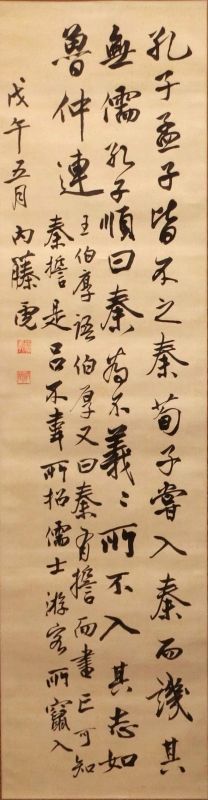 孔子孟子皆不之秦荀子嘗入秦而譏其
無儒孔子順曰秦為不義〻所不入其志如
魯仲連
王伯厚語伯厚又曰秦有誓而書亡可知
秦誓是呂不韋所招儒士游客所竄入
戊午五月内藤虎